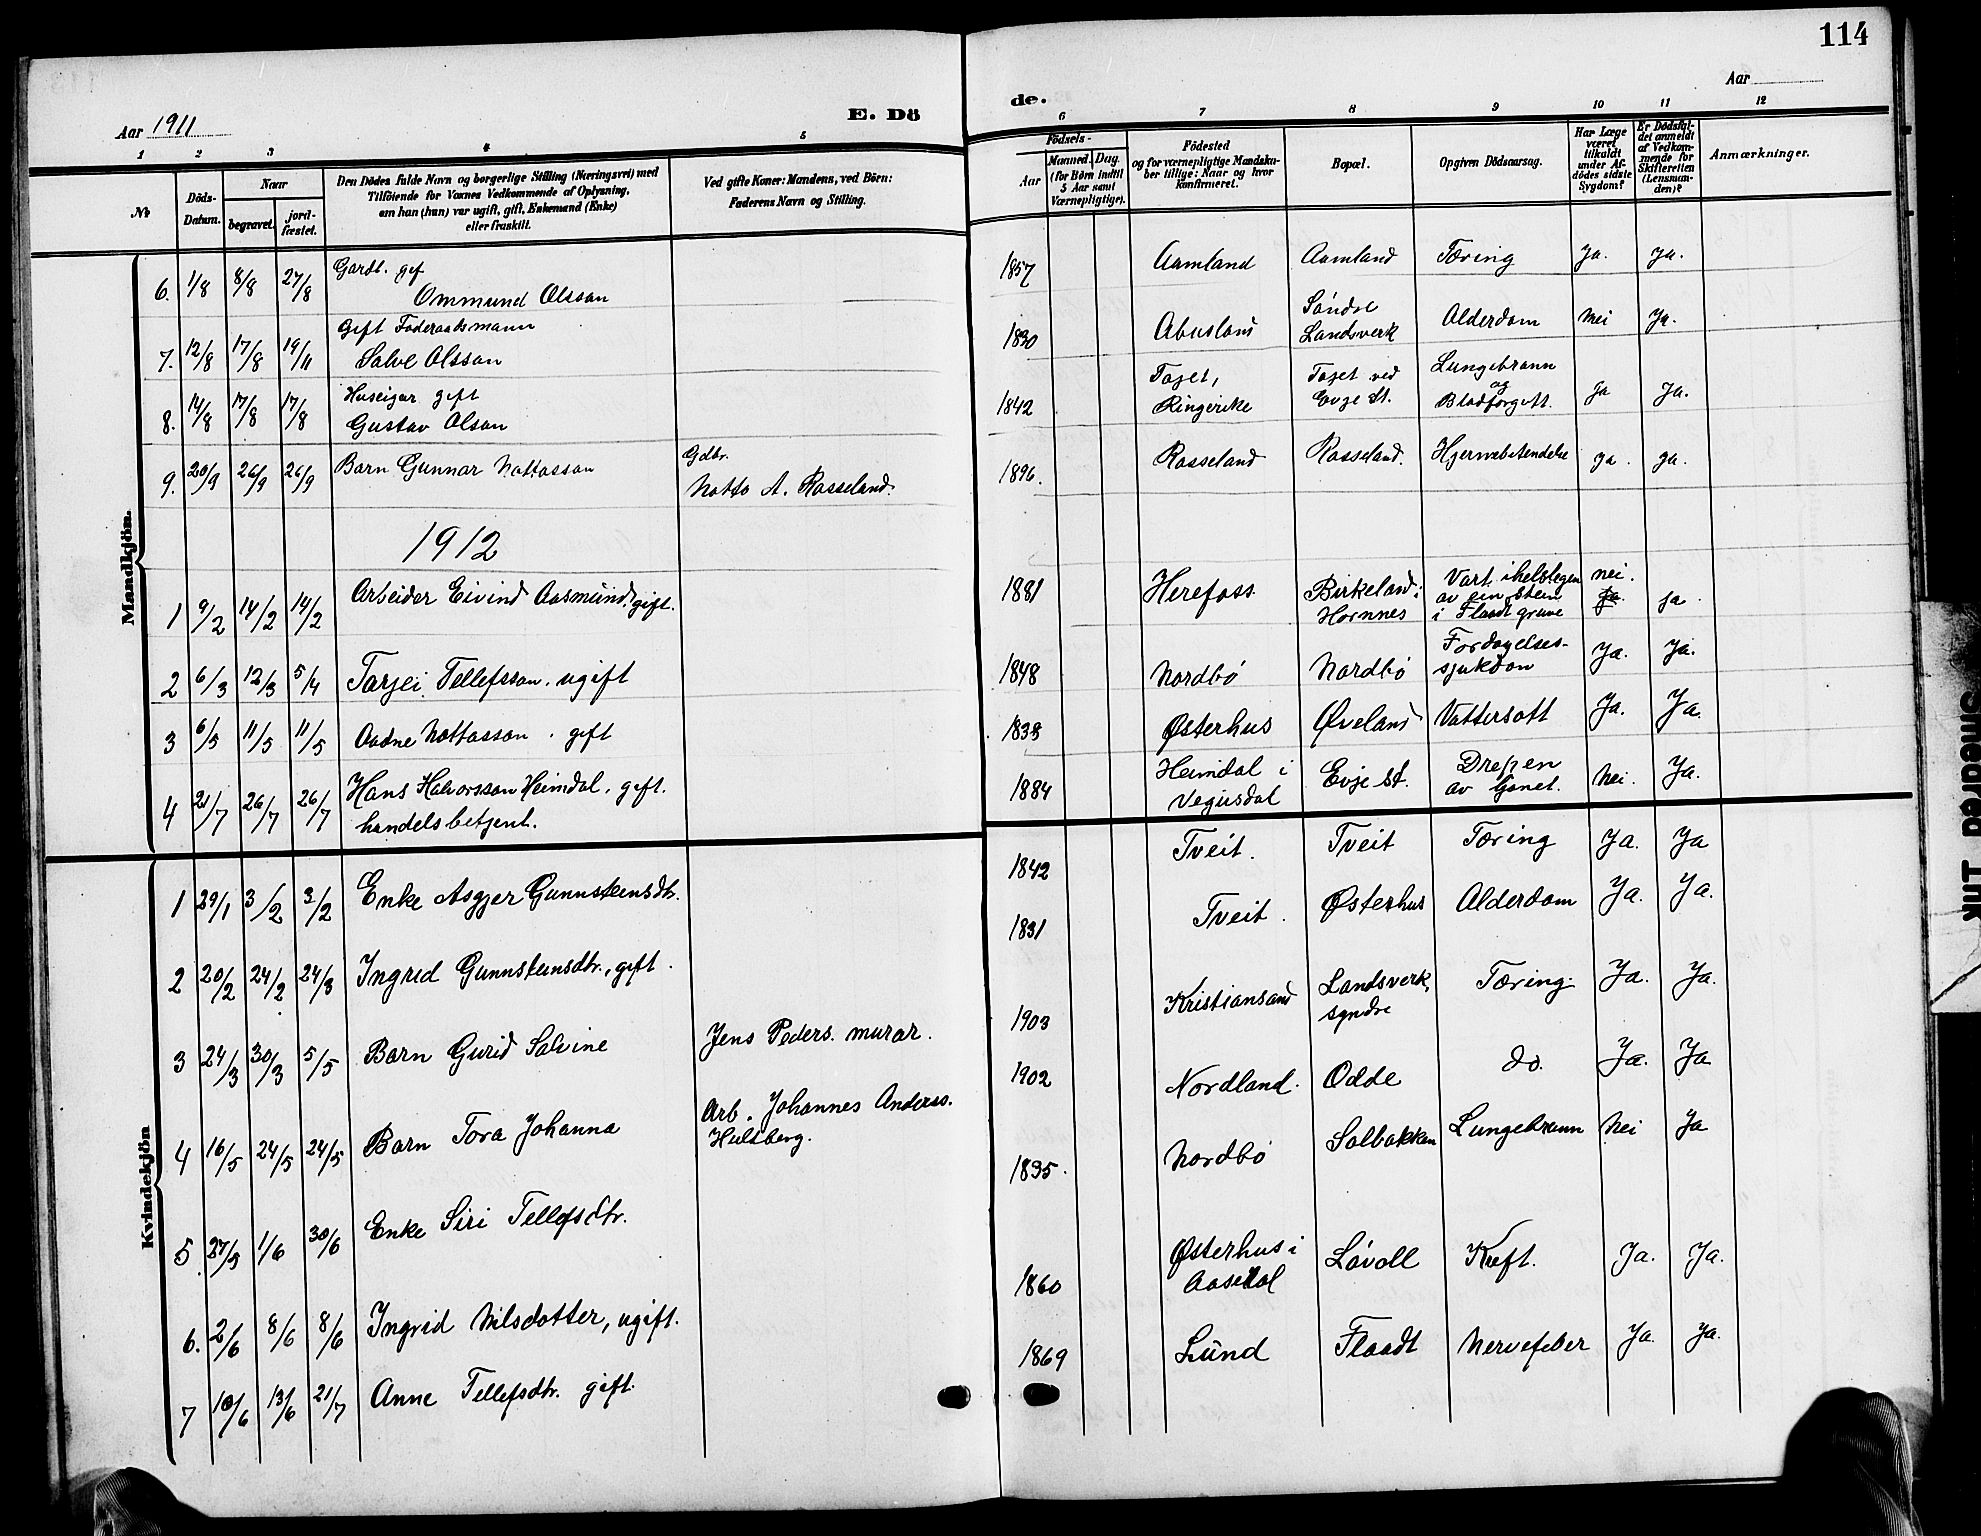 114
Aar 1911
E. Dö
de.
Aar
1 2 3 4 5 6 7 8 9 10 11 12
№
Döds-Datum.
Naar
begravet.
jord-fæstet.
Den Dödes fulde Navn og borgerlige Stilling (Næringsvei) med
Tilföiende for Voxnes Vedkommende af Oplysning,
om han (hun) var ugift, gift, Enkemand (Enke)
eller fraskilt.
Ved gifte Koner: Mandens, ved Börn:
Faderens Navn og Stilling.
Födsels-
Aar
Maaned. Dag.
(for Börn indtil
5 Aar samt
Værnepligtige).
Födested
og for værnepligtige Mandskaber tillige: Naar og hvor
konfirmeret.
Bopæl.
Opgiven Dödsaarsag.
Har Læge
været
tilkaldt
under Afdödes sidste
Sygdom?
Er Dödsfaldet anmeldt
af Vedkommende for
Skifteretten
(Lensmanden)?
Anmærkninger.
Mandkjön.
6. 1/8 8/8 27/8 Gardb. gif Ommund Olsson 1857 Aamland Aamland Tæring Ja. Ja.
7. 12/8 17/8 19/11 Gift Foderaadsmann Salve Olsson 1830 Abusland Søndre Landsverk Alderdom Nei Ja.
8. 14/8 17/8 17/8 Huseigar gift Gustav Olson 1842 Ringerike Evje St. Lungebrann og Blodforgift. Ja Ja.
9. 20/9 26/9 26/9 Barn Gunnar Nottosson Gdbr. Notto A. Rosseland. 1896. Rosseland Rosseland. Hjernebetendelse Ja. Ja.
1912
1 9/2 14/2 14/2 Arbeider Eivind Aasmund. gift. 1881 Herefoss Birkeland i Hornnes Vart ihelslegen av ein stein i Flaadt gruve nei. Ja. Ja.
2 6/3 12/3 5/4 Torjei Tellefsson. ugift 1848 Nordbø Nordbø Fordøyelses-sjukdom Ja. Ja.
3 6/5 11/5 11/5 Aadne Nottosson. gift 1838 Østerhus Øveland Vattersott Ja. Ja.
4 21/7 26/7 26/7 Hans Halvorsson Heimdal. gift. handelsbetjent. 1884 Heimdal i Vegusdal Evje st. Drepen av Toget. Nei. Ja.
Kvindekjön
1 29/1 3/2 3/2 Enke Asgjer Gunnsteinsdtr. 1842 Tveit. Tveit Tæring Ja. Ja
2 20/2 24/2 24/3 Ingrid Gunnsteinsdtr., gift. 1831 Tveit. Østerhus Alderdom Ja. Ja.
3 24/3 30/3 5/5 Barn Gurid Salvine Jens Peders. murar. 1903 Kristiansand Landsverk, syndre Tæring Ja. Ja.
4 16/5 24/5 24/5 Barn Tora Johanna Arb. Johannes Anderss. Hultberg. 1902 Nordland. Odde do. Ja. Ja
5. 27/5 1/6 30/6 Enke Siri Tellefsdtr. 1835. Nordbø Solbakken Lungebrann Nei Ja
6. 2/6 8/6 8/6 Ingrid Nilsdotter, ugift. 1860 Østerhus i Aaseral Løvoll Kreft. Ja. Ja.
7 10/6 13/6 21/7 Anne Tellefsdtr. gift. 1869 Lund Flaadt Nervefeber Ja. Ja.